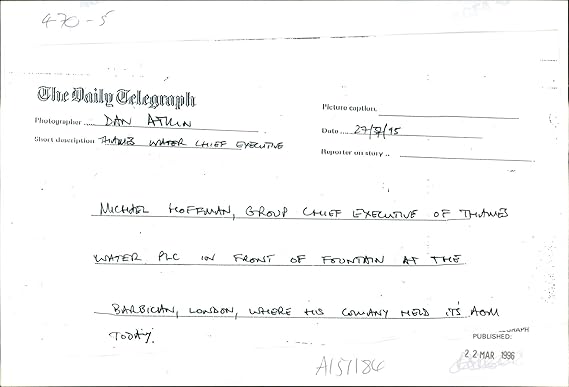 470-5
The Daily Telegraph
Picture caption
Photographer ..... DAN ATKIN
Date .... 27/7/95
Short description THAMES WATER CHIEF EXECUTIVE
Reporter on story ..
MICHAEL HOFFMAN, GROUP CHIEF EXECUTIVE OF THAMES
WATER PLC IN FRONT OF FOUNTAIN AT THE
BARBICAN, LONDON, WHERE HIS COMPANY HELD IT'S AGM
TODAY.
GRAPH
PUBLISHED:
22 MAR 1996
A151186